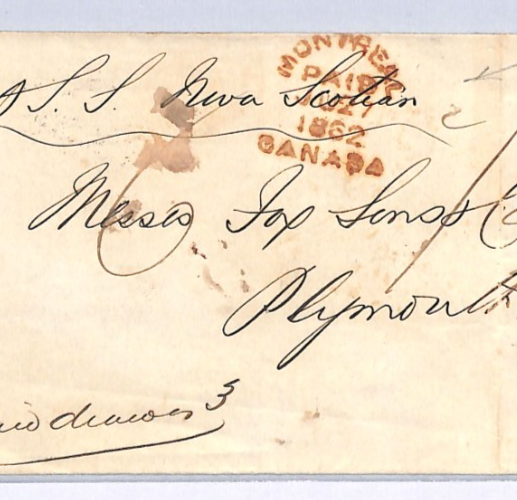 S. S. Nova Scotian
MONTREAL
PAID
27
1862
CANADA
Messrs Fox Sons &
Plymouth
3